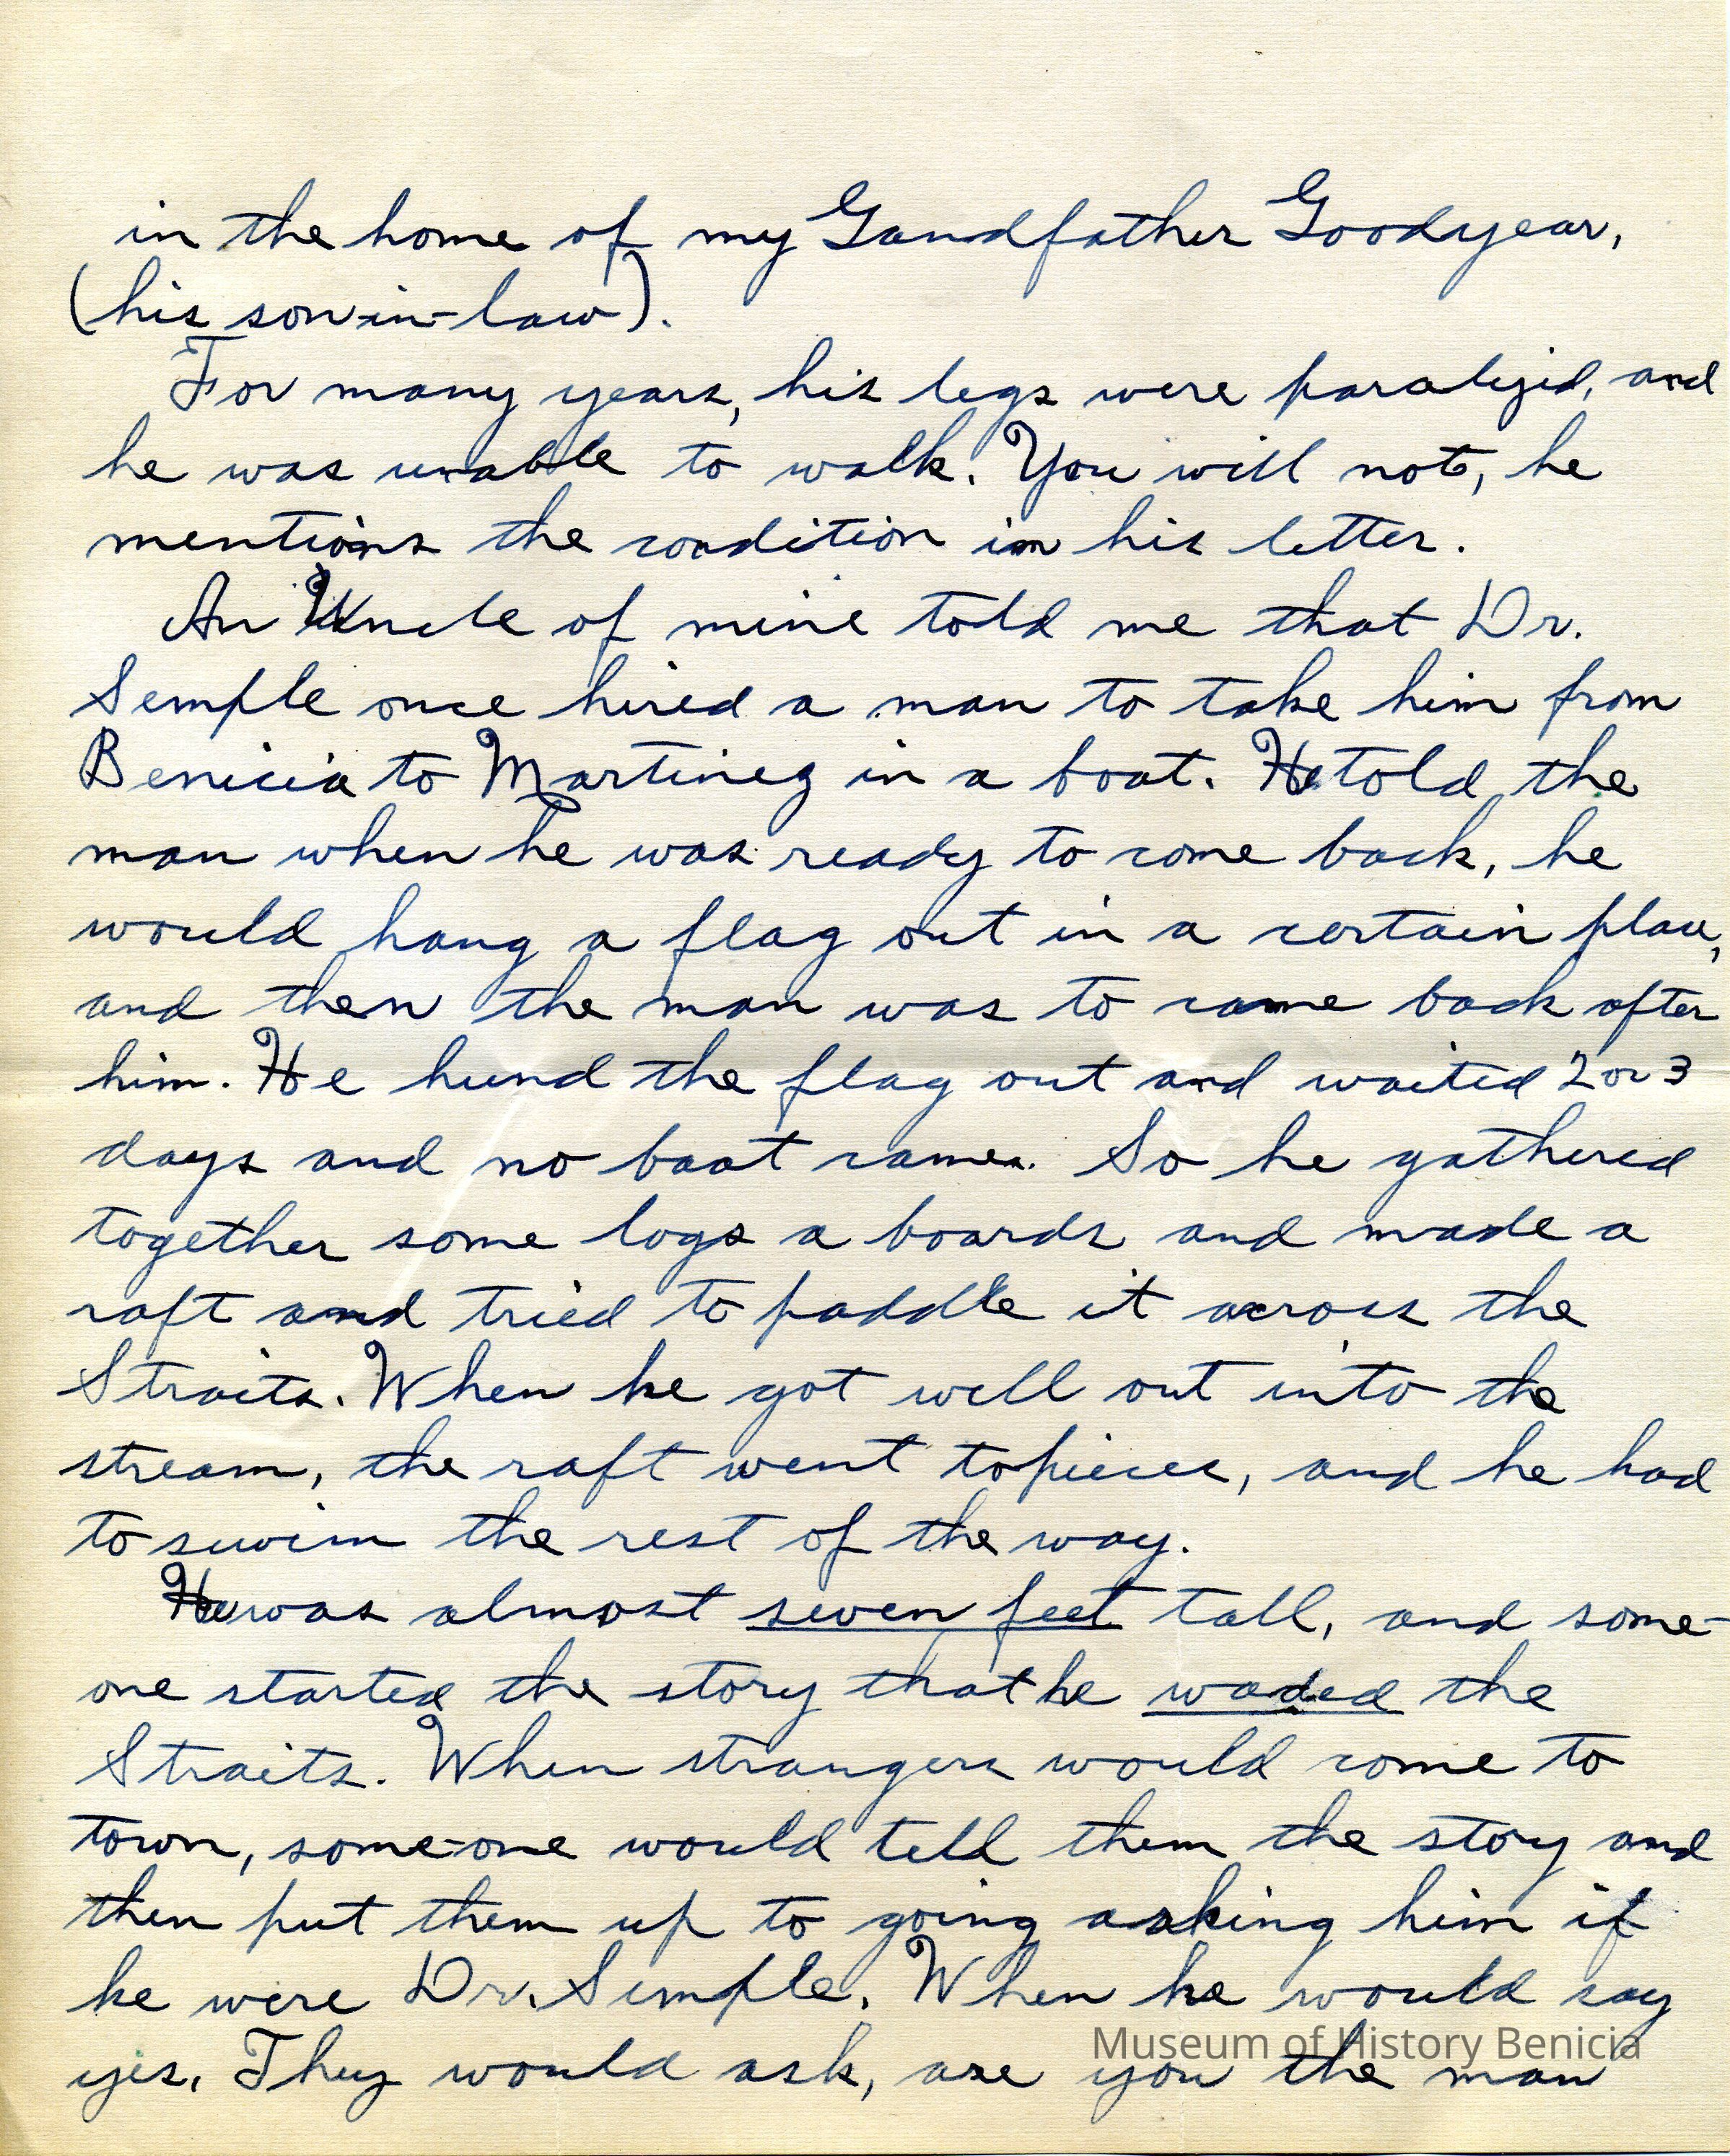 in the home of my Gandfather Goodyear,
(his son-in-law).
For many years, his legs were paralyzid, and
he was unable to walk. You will not, he
mentions the condition in his letter.
An Uncle of mine told me that Dr.
Semple once hired a man to take him from
Benicia to Martinez in a boat. He told the
man when he was ready to come back, he
would hang a flag out in a certain place,
and then the man was to come back after
him. He hund the flag out and waited 2 or 3
days and no boat came. So he gathered
together some logs a boards and made a
raft and tried to paddle it across the
Straits. When he got well out into the
stream, the raft went to pieces, and he had
to swim the rest of the way.
He was almost seven feet tall, and some-
one started the story that he waded the
Straits. When strangers would come to
town, some-one would tell them the story and
then put them up to going asking him if
he were Dr. Semple. When he would say
yes, They would ask, are you the man
Museum of History Benicia